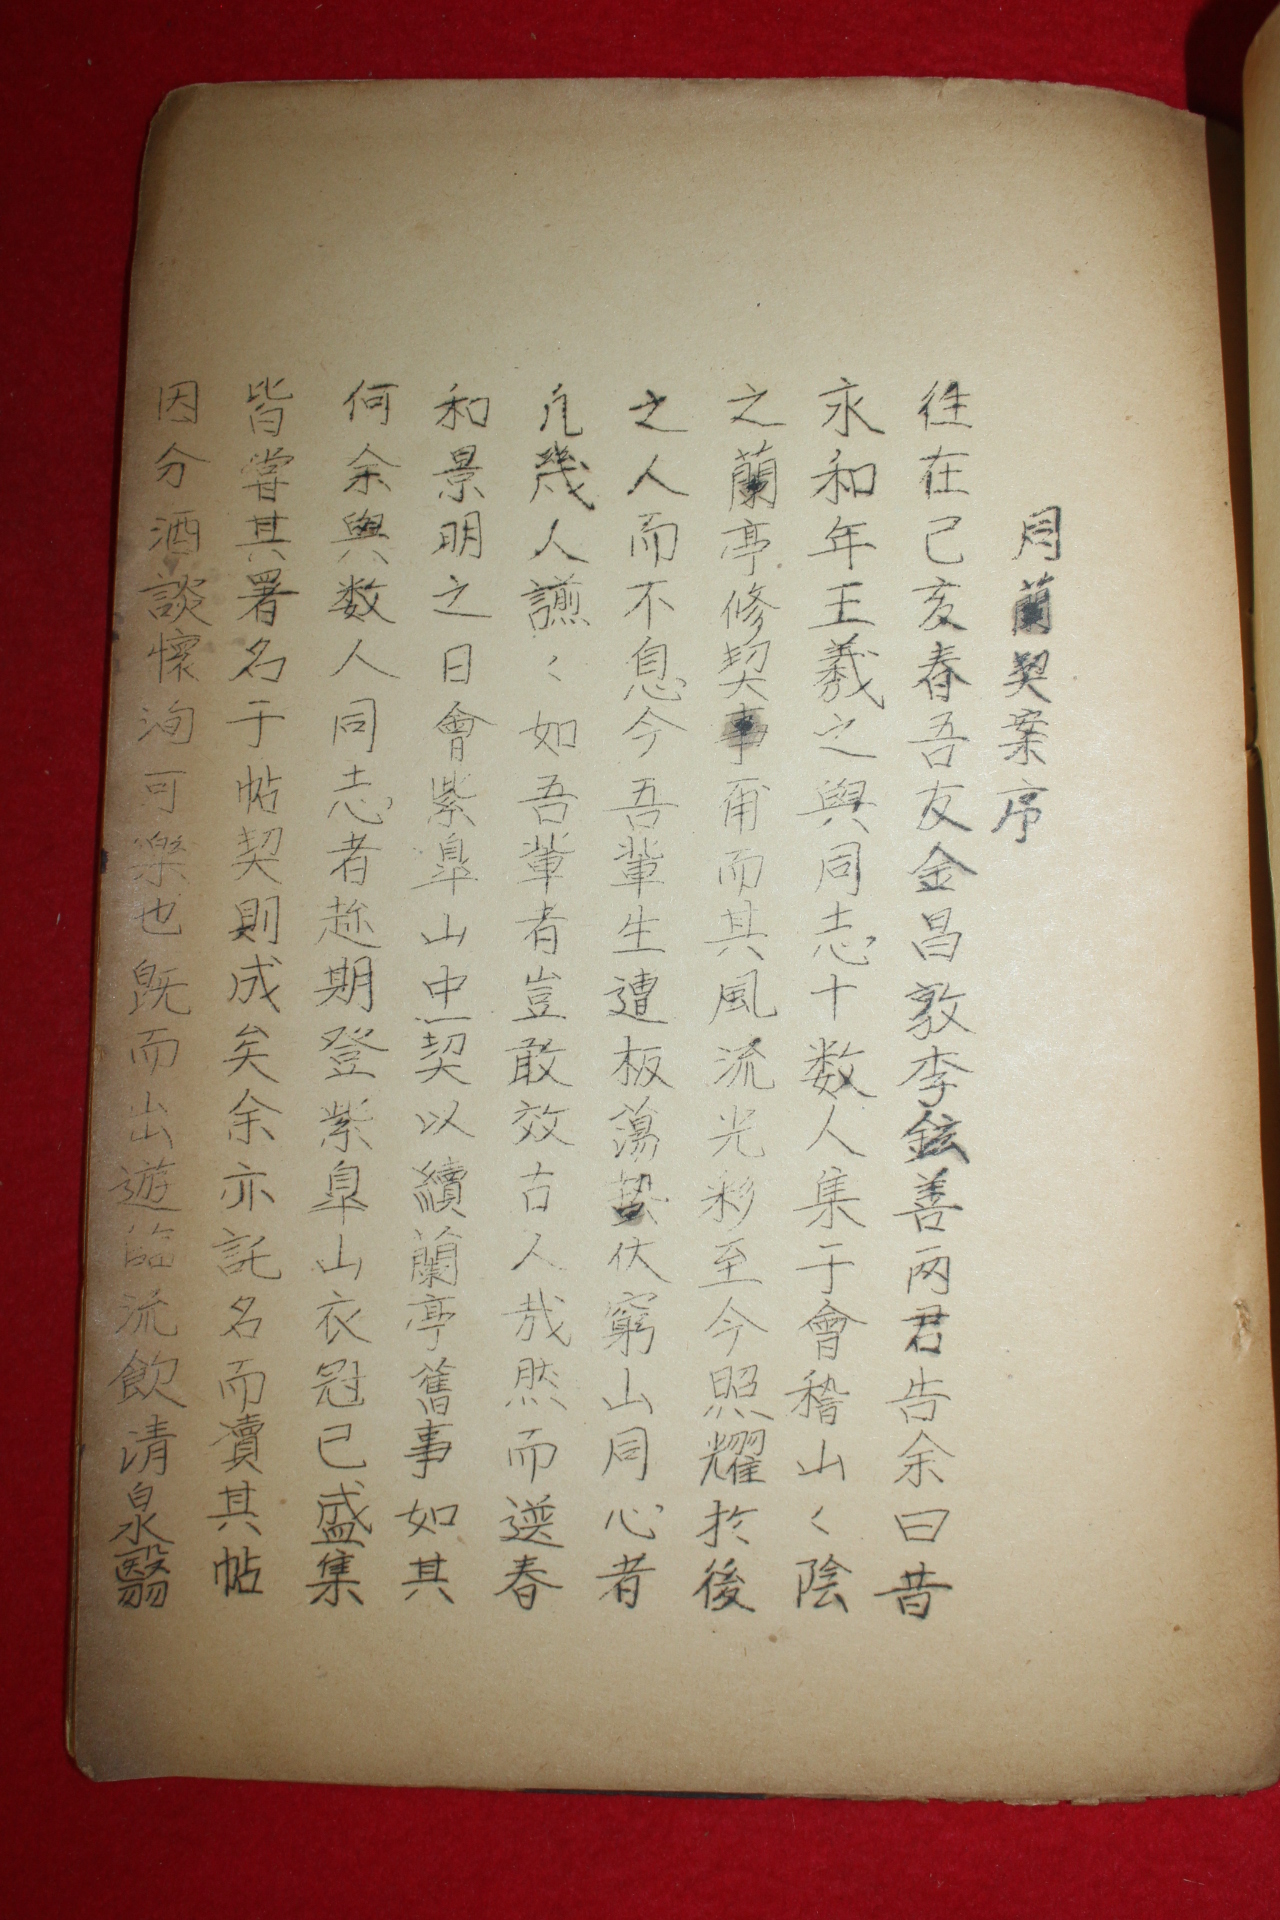 同蘭契案序
往在己亥春吾友金昌敦李鉉善兩君告余曰昔
永和年王羲之與同志十数人集于會稽山〻陰
之蘭亭修契事甫而其風流光彩至今照耀於後
之人而不息今吾輩生遭板蕩蟄伏窮山同心者
凡幾人讌〻如吾輩者豈敢效古人哉然而選春
和景明之日會紫皐山中契以續蘭亭舊事如其
何余與数人同志者趂期登紫皐山衣冠已盛集
皆嘗其署名于帖契則成矣余亦託名而瀆其帖
因分酒談懷洵可樂也旣而出遊臨流飮清泉翳